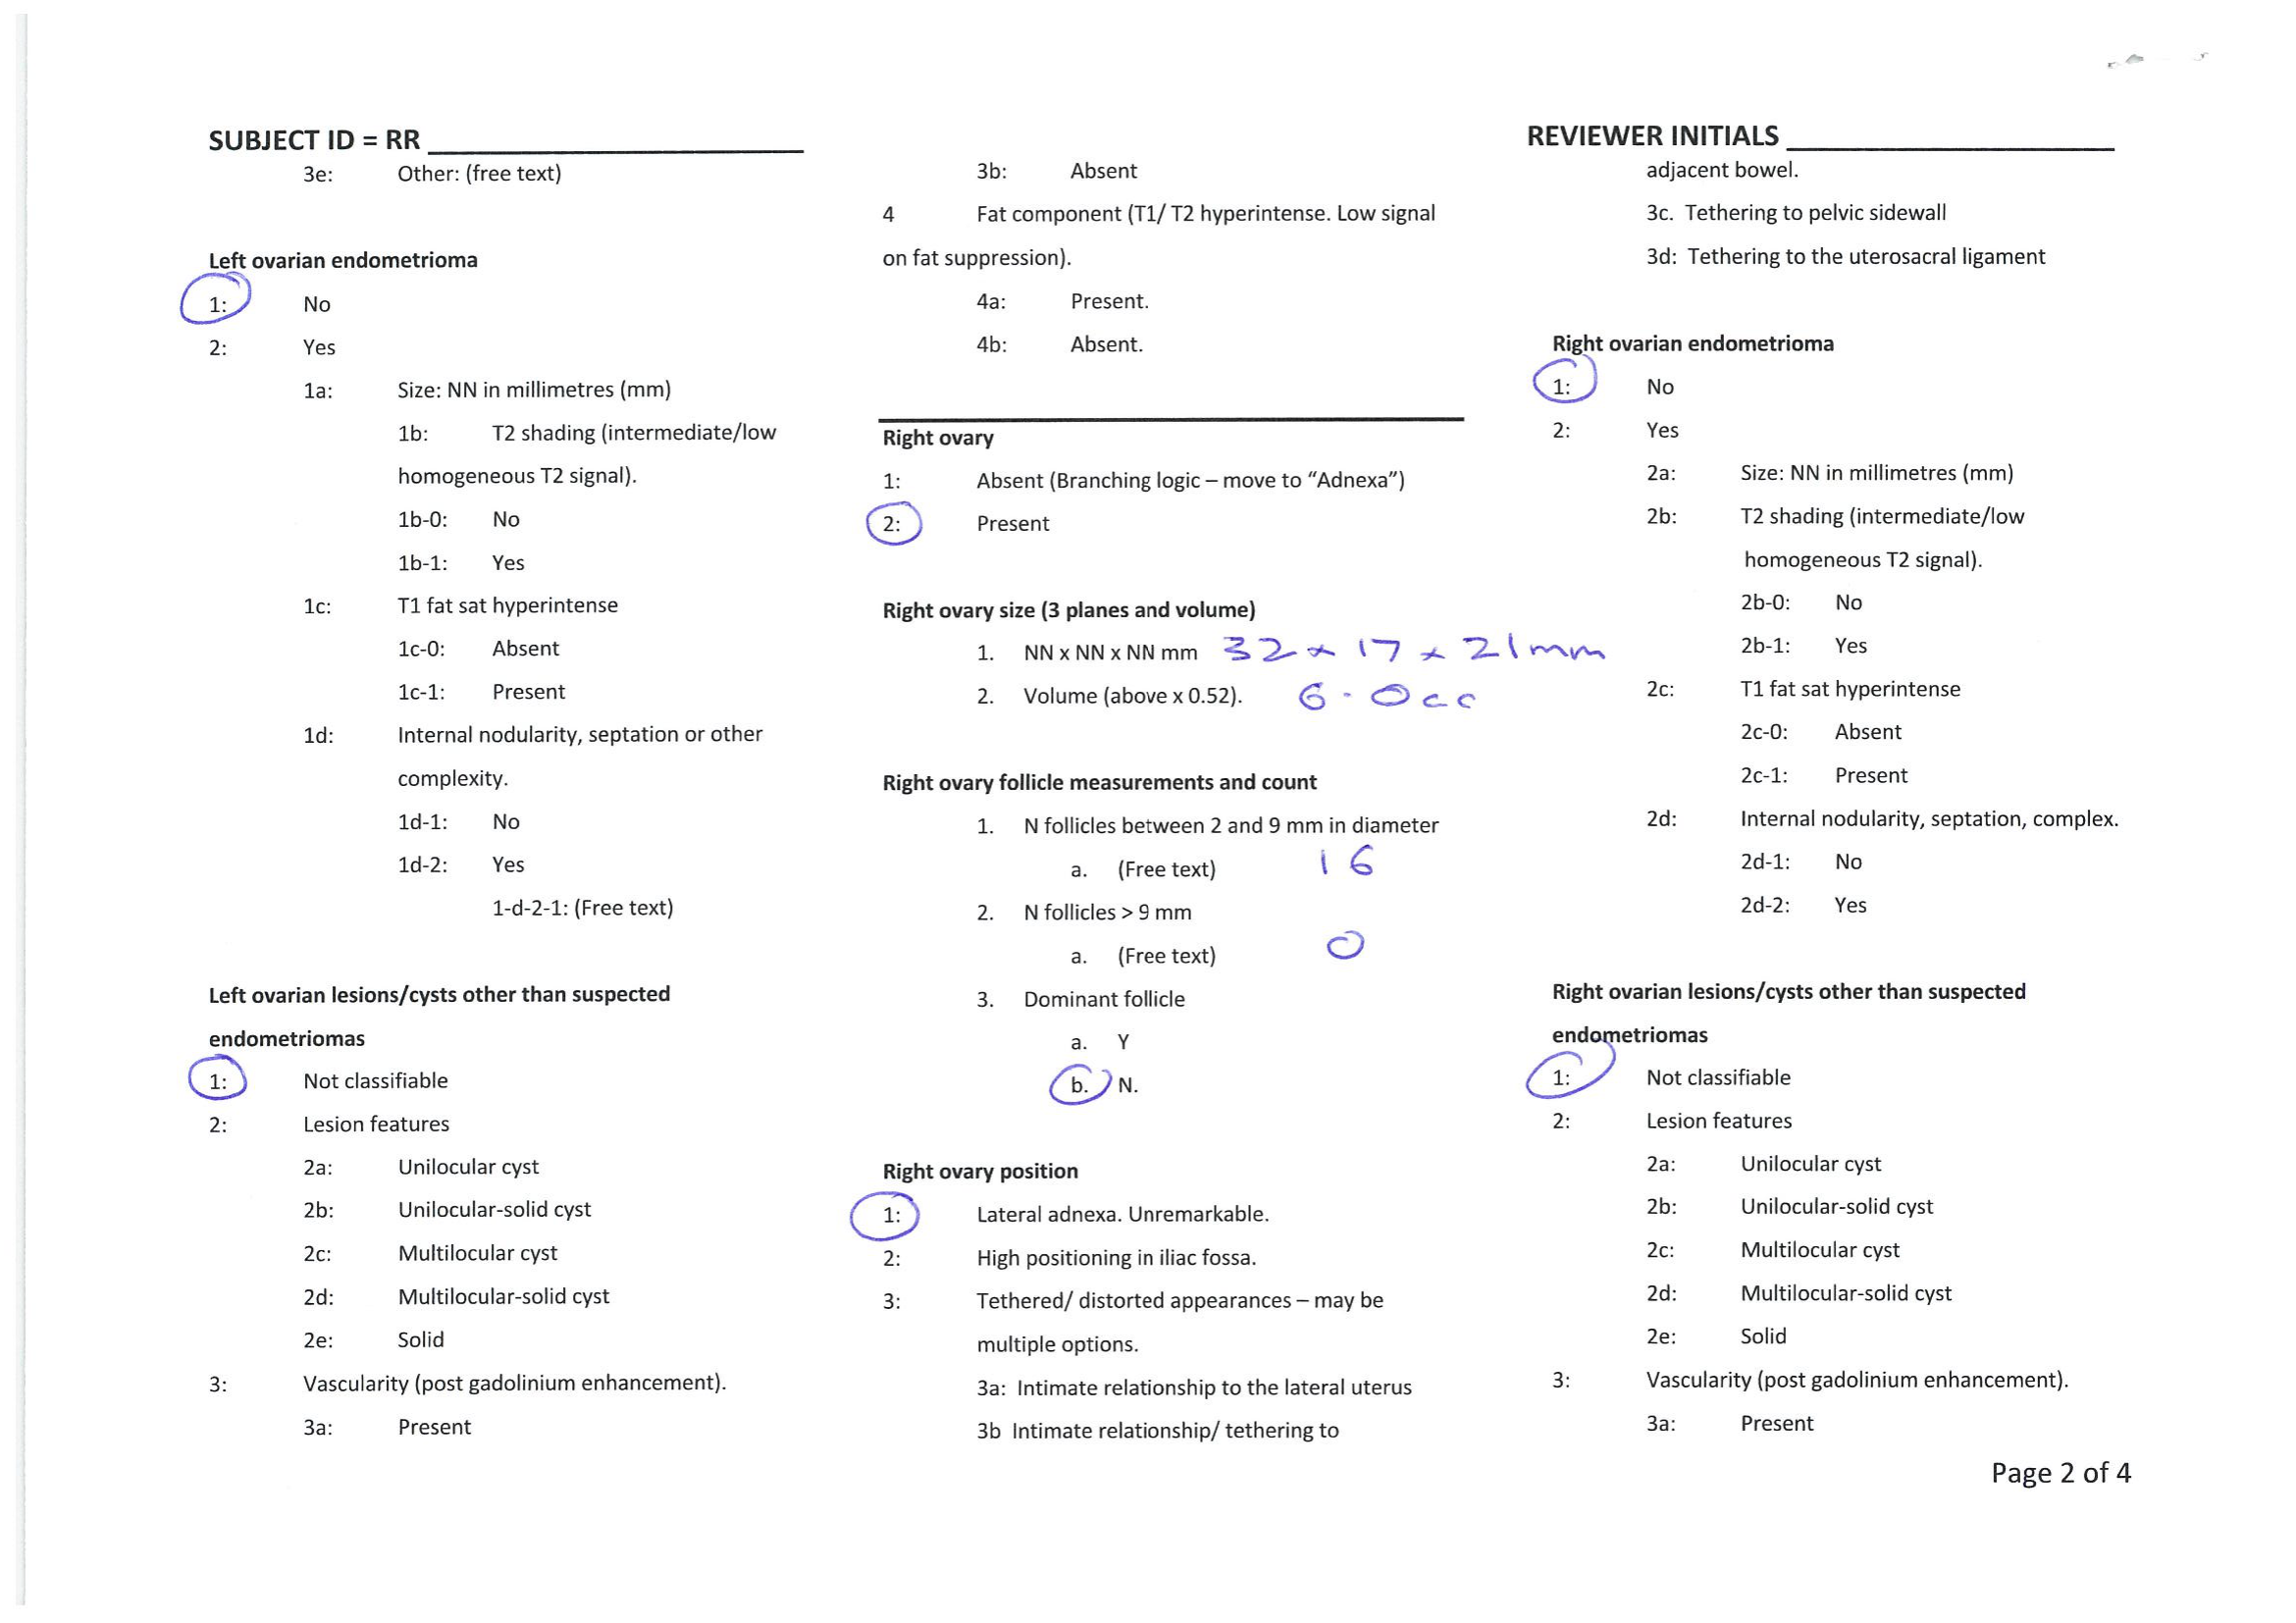 SUBJECT ID = RR
3e: Other: (free text)
Left ovarian endometrioma
1: No
2: Yes
1a: Size: NN in millimetres (mm)
1b: T2 shading (intermediate/low
homogeneous T2 signal).
1b-0: No
1b-1: Yes
1c: T1 fat sat hyperintense
1c-0: Absent
1c-1: Present
1d: Internal nodularity, septation or other
complexity.
1d-1: No
1d-2: Yes
1-d-2-1: (Free text)
Left ovarian lesions/cysts other than suspected
endometriomas
1: Not classifiable
2: Lesion features
2a: Unilocular cyst
2b: Unilocular-solid cyst
2c: Multilocular cyst
2d: Multilocular-solid cyst
2e: Solid
3: Vascularity (post gadolinium enhancement).
3a: Present
3b: Absent
4 Fat component (T1/ T2 hyperintense. Low signal
on fat suppression).
4a: Present.
4b: Absent.
Right ovary
1: Absent (Branching logic – move to “Adnexa”)
2: Present
Right ovary size (3 planes and volume)
1. NN x NN x NN mm 32 x 17 x 21mm
2. Volume (above x 0.52). 6.0cc
Right ovary follicle measurements and count
1. N follicles between 2 and 9 mm in diameter
a. (Free text) 16
2. N follicles > 9 mm
a. (Free text) 0
3. Dominant follicle
a. Y
b. N.
Right ovary position
1: Lateral adnexa. Unremarkable.
2: High positioning in iliac fossa.
3: Tethered/ distorted appearances – may be
multiple options.
3a: Intimate relationship to the lateral uterus
3b Intimate relationship/ tethering to
REVIEWER INITIALS
adjacent bowel.
3c. Tethering to pelvic sidewall
3d: Tethering to the uterosacral ligament
Right ovarian endometrioma
1: No
2: Yes
2a: Size: NN in millimetres (mm)
2b: T2 shading (intermediate/low
homogeneous T2 signal).
2b-0: No
2b-1: Yes
2c: T1 fat sat hyperintense
2c-0: Absent
2c-1: Present
2d: Internal nodularity, septation, complex.
2d-1: No
2d-2: Yes
Right ovarian lesions/cysts other than suspected
endometriomas
1: Not classifiable
2: Lesion features
2a: Unilocular cyst
2b: Unilocular-solid cyst
2c: Multilocular cyst
2d: Multilocular-solid cyst
2e: Solid
3: Vascularity (post gadolinium enhancement).
3a: Present
Page 2 of 4